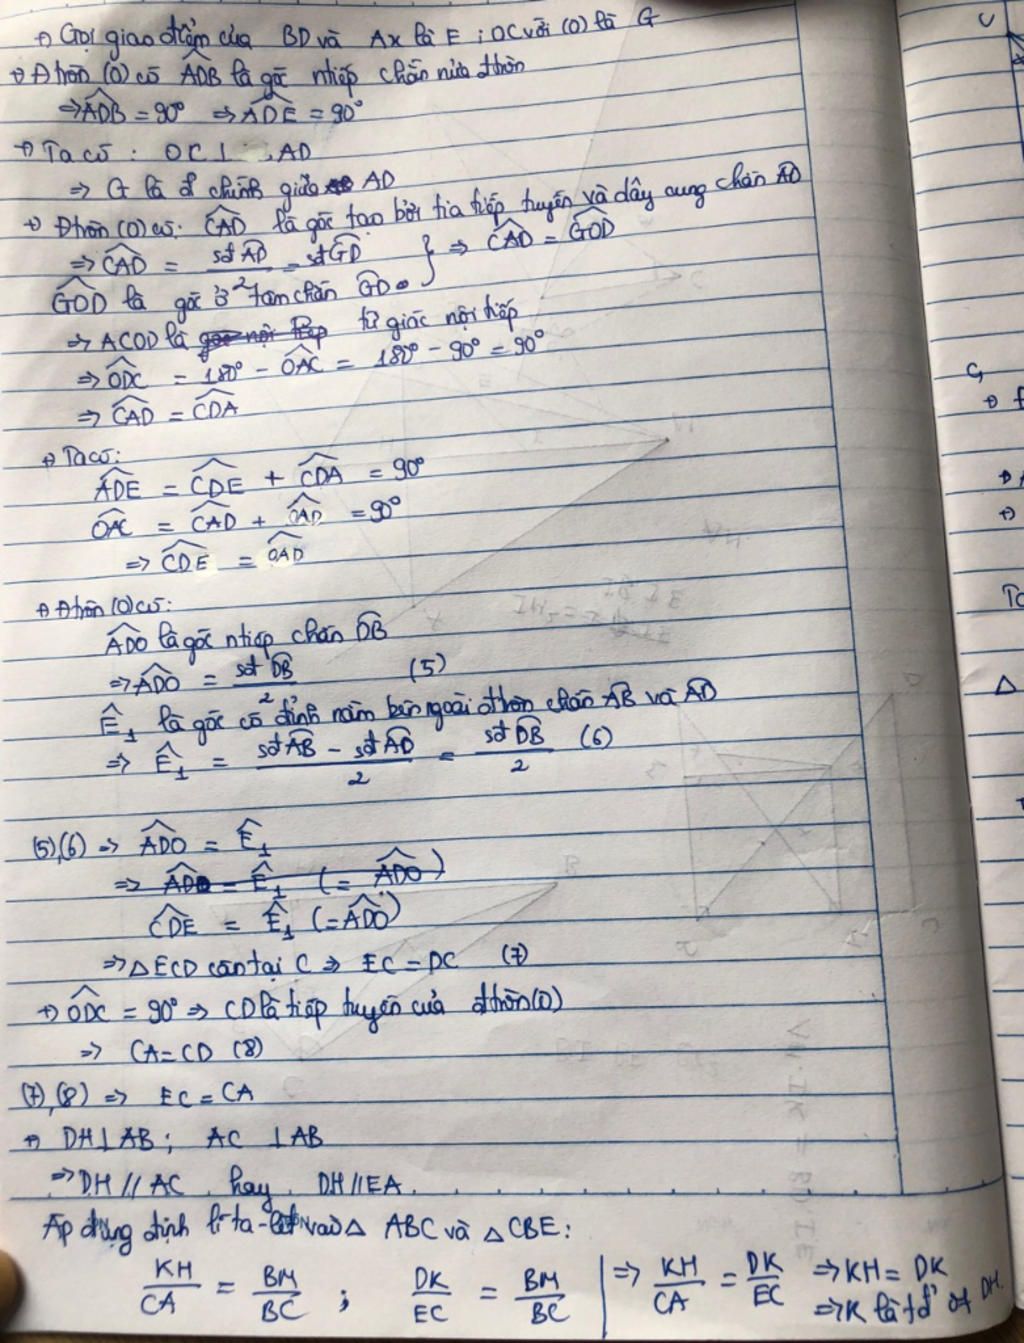 +) Gọi giao điểm của BD và Ax là E ; OC với (O) là G
+) Đtròn (O) có $\widehat{ADB}$ là góc ntiếp chắn nửa đtròn
⇒ $\widehat{ADB}$ = 90° ⇒ $\widehat{ADE}$ = 90°
+) Ta có : OC ⊥ AD
⇒ G là đ chính giữa AD
+) Đtròn (O) có: $\widehat{CAD}$ là góc tạo bởi tia tiếp tuyến và dây cung chắn $\widehat{AD}$
⇒ $\widehat{CAD}$ = $\frac{sđ \widehat{AD}}{2}$ = sđ $\widehat{GD}$ } ⇒ $\widehat{CAD}$ = $\widehat{GOD}$
$\widehat{GOD}$ là góc ở tâm chắn $\widehat{GD}$
⇒ ACOD là tứ giác nội tiếp
⇒ $\widehat{ODC}$ = 180° - $\widehat{OAC}$ = 180° - 90° = 90°
⇒ $\widehat{CAD}$ = $\widehat{CDA}$
+) Ta có:
$\widehat{ADE}$ = $\widehat{CDE}$ + $\widehat{CDA}$ = 90°
$\widehat{OAC}$ = $\widehat{CAD}$ + $\widehat{OAD}$ = 90°
⇒ $\widehat{CDE}$ = $\widehat{OAD}$
+) Đtròn (O) có:
$\widehat{ADO}$ là góc ntiếp chắn $\widehat{DB}$
⇒ $\widehat{ADO}$ = $\frac{sđ \widehat{DB}}{2}$ (5)
$\widehat{E}_1$ là góc có đỉnh nằm bên ngoài đtròn chắn $\widehat{AB}$ và $\widehat{AD}$
⇒ $\widehat{E}_1$ = $\frac{sđ \widehat{AB} - sđ \widehat{AD}}{2}$ = $\frac{sđ \widehat{DB}}{2}$ (6)
(5),(6) ⇒ $\widehat{ADO}$ = $\widehat{E}_1$
⇒ $\widehat{ADO}$ = $\widehat{E}_1$ (= $\widehat{ADO}$)
$\widehat{CDE}$ = $\widehat{E}_1$ (= $\widehat{ADO}$)
⇒ △ECD cân tại C ⇒ EC = DC (7)
+) $\widehat{ODC}$ = 90° ⇒ CD là tiếp tuyến của đtròn (O)
⇒ CA = CD (8)
(7),(8) ⇒ EC = CA
+) DH ⊥ AB ; AC ⊥ AB
⇒ DH // AC hay DH // EA
Áp dụng định lí ta-lét vào △ ABC và △ CBE :
$\frac{KH}{CA}$ = $\frac{BM}{BC}$ ; $\frac{DK}{EC}$ = $\frac{BM}{BC}$ | ⇒ $\frac{KH}{CA}$ = $\frac{DK}{EC}$ ⇒ KH = DK
⇒ K là tđ' of DH.